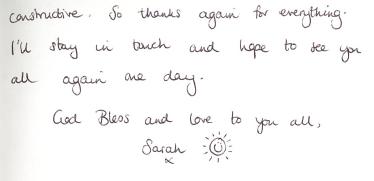 constructive. So thanks again for everything.
I'll stay in touch and hope to see you
all again one day.
God Bless and love to you all,
Sarah
x